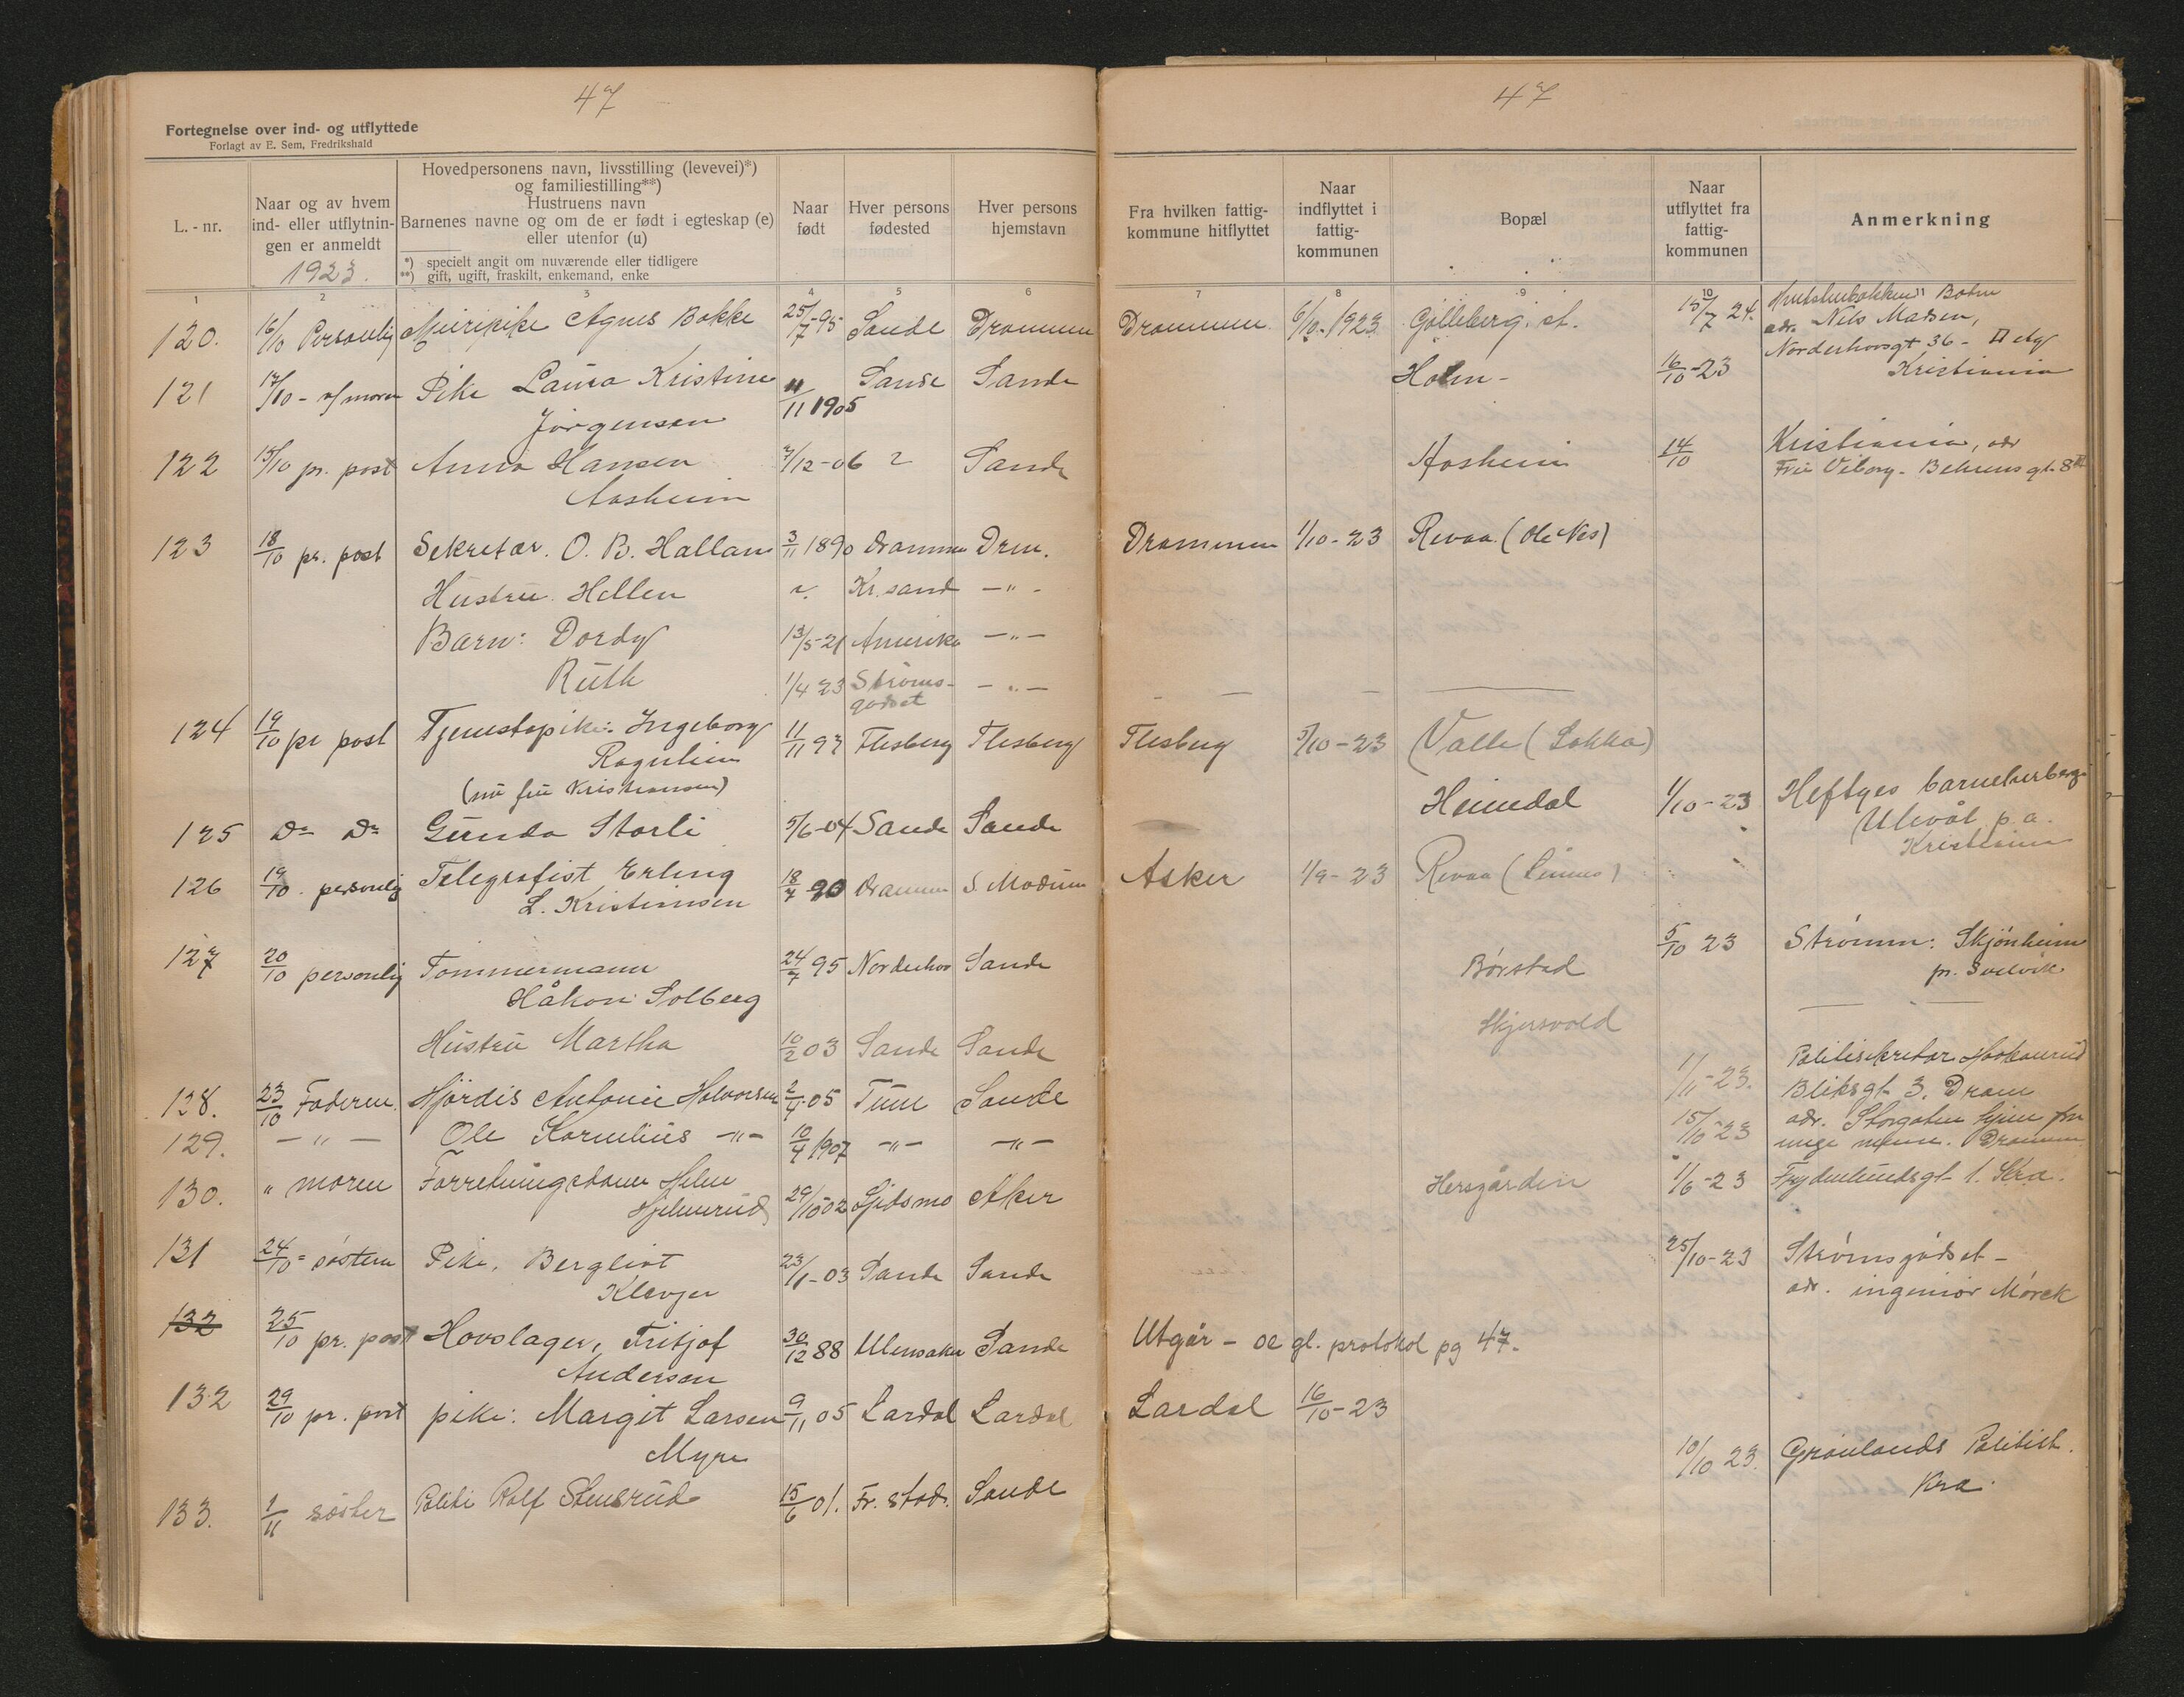 47
Fortegnelse over ind- og utflyttede
Forlagt av E. Sem, Fredrikshald
L. - nr.
Naar og av hvem
ind- eller utflytnin-
gen er anmeldt
1923.
Hovedpersonens navn, livsstilling (levevei)*)
og familiestilling**)
Hustruens navn
Barnenes navne og om de er født i egteskap (e)
eller utenfor (u)
*) specielt angit om nuværende eller tidligere
**) gift, ugift, fraskilt, enkemand, enke
Naar
født
Hver persons
fødested
Hver persons
hjemstavn
1 2 3 4 5 6
120. 16/10 Personlig Meieripike Agnes Bakke 25/7-95 Sande Drammen
121 17/10 - af moren Pike Laura Kristine 4/11 1905 Sande Sande
Jörgensen
122 15/10 pr. post Anna Hansen 7/12-06 ? Sande
Aasheim
123 18/10 pr. post Sekretær. O. B. Hallan 3/11 1890 Drammen Drm.
Hustru. Hellen ? Kr.sand -"-
Barn: Dordy 13/5-21 Amerika -"-
Ruth 1/4 23 Ströms- -"-
godset
124 19/10 pr post Tjenestepike: Ingeborg 11/11 97 Flesberg Flesberg
Rogulien
(nu fru Kristiansen)
125 Do Do Gunda Storli 5/6-04 Sande Sande
126 19/10. personlig Telegrafist Erling 18/7 90 Drammen S. Modum
L. Kristiansen
127 20/10 personlig Tømmermann 24/7 95 Norderhov Sande
Håkon Solberg
Hustru Martha 10/2 03 Sande Sande
128. 23/10 Faderen. Hjördis Antonie Halvorsen 2/4-05 Tune Sande
129. -"- Ole Kornelius -"- 10/4 1907 -"- -"-
130. " moren Forretningsdame Helene 29/10 02 Aker
Hjelmerud
131 24/10 = søsteren Pike, Bergliot 23/1-03 Sande Sande
Klevjer
132 25/10 pr. post Hovslager, Fritjof 30/12 88 Ullensaker Sande
Andersen
132 29/10 pr. post pike: Margit Larsen 9/11 05 Lardal Lardal
Myre
133. 1/11 søster Politi Rolf Stensrud 15/6 01. Fr. stad. Sande
47
Fra hvilken fattig-
kommune hitflyttet
Naar
indflyttet i
fattig-
kommunen
Bopæl
Naar
utflyttet fra
fattig-
kommunen
Anmerkning
7 8 9 10 11
Drammen 6/10-1923 Gölleberg. st. 15/7 24.
adr. Nils Madsen,
Norderhovsgt 36 - II etg
Holm - 16/10-23 Kristiania
Aasheim 14/10 Kristiania, adr
Fru Viborg. Behrens gt. 8
Drammen 1/10-23 Revaa (Ole Nes)
Flesberg 5/10-23 Valle (Lokka)
Heimdal 1/10-23 Heftyes barneherberge
Ulevål p. a.
Kristiania
Asker 1/9-23 Revaa (Linnes)
Börstad 5/10 23 Strömm: Skjönheim
pr. Svelvik
Skjersvold
1/11-23. Politisekretær Haakanrud
Bliksgt 3. Dram
15/10-23 adr. Storgaten hjem for
unge menn. Drammen
Hersgården 1/6-23 Frydenlundsgt 1. Kra.
25/10-23 Strömsgodset -
adr. ingeniör Mörck
Utgår - se gl. protokol pg 47.
Lardal 16/10-23
10/10 23. Grönlands Politist.
Kra.